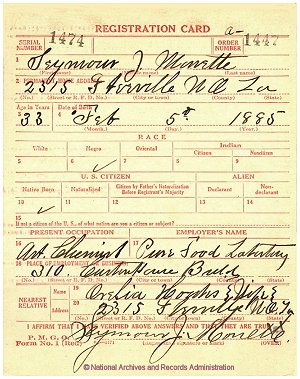 REGISTRATION CARD
SERIAL NUMBER 1474 a- ORDER NUMBER 1447
1 Seymour J. Monette
(First name) (Middle name) (Last name)
2 PERMANENT HOME ADDRESS
2315 N.O. La
(No.) (Street or R. F. D. No.) (City or town) (County) (State)
Age in Years Date of Birth
3 33 4 Feb 5th 1885
(Month.) (Day.) (Year.)
RACE
White Negro Oriental Indian
Citizen Noncitizen
5 6 ✓ 7 8 9
U. S. CITIZEN ALIEN
Native Born Naturalized Citizen by Father's Naturalization Before Registrant's Majority Declarant Non-declarant
10 ✓ 11 12 13 14
15 If not a citizen of the U. S., of what nation are you a citizen or subject?
PRESENT OCCUPATION EMPLOYER'S NAME
16 Chemist 17 Pure Food
18 PLACE OF EMPLOYMENT OR BUSINESS
310
(No.) (Street or R. F. D. No.) (City or town) (County) (State)
NEAREST RELATIVE Name 19
Address 20 2315 N.O. La
(No.) (Street or R. F. D. No.) (City or town) (County) (State)
I AFFIRM THAT I HAVE VERIFIED ABOVE ANSWERS AND THAT THEY ARE TRUE
P. M. G. O.
Form No. 1 (Red) Seymour J. Monette
(OVER)
© National Archives and Records Administration